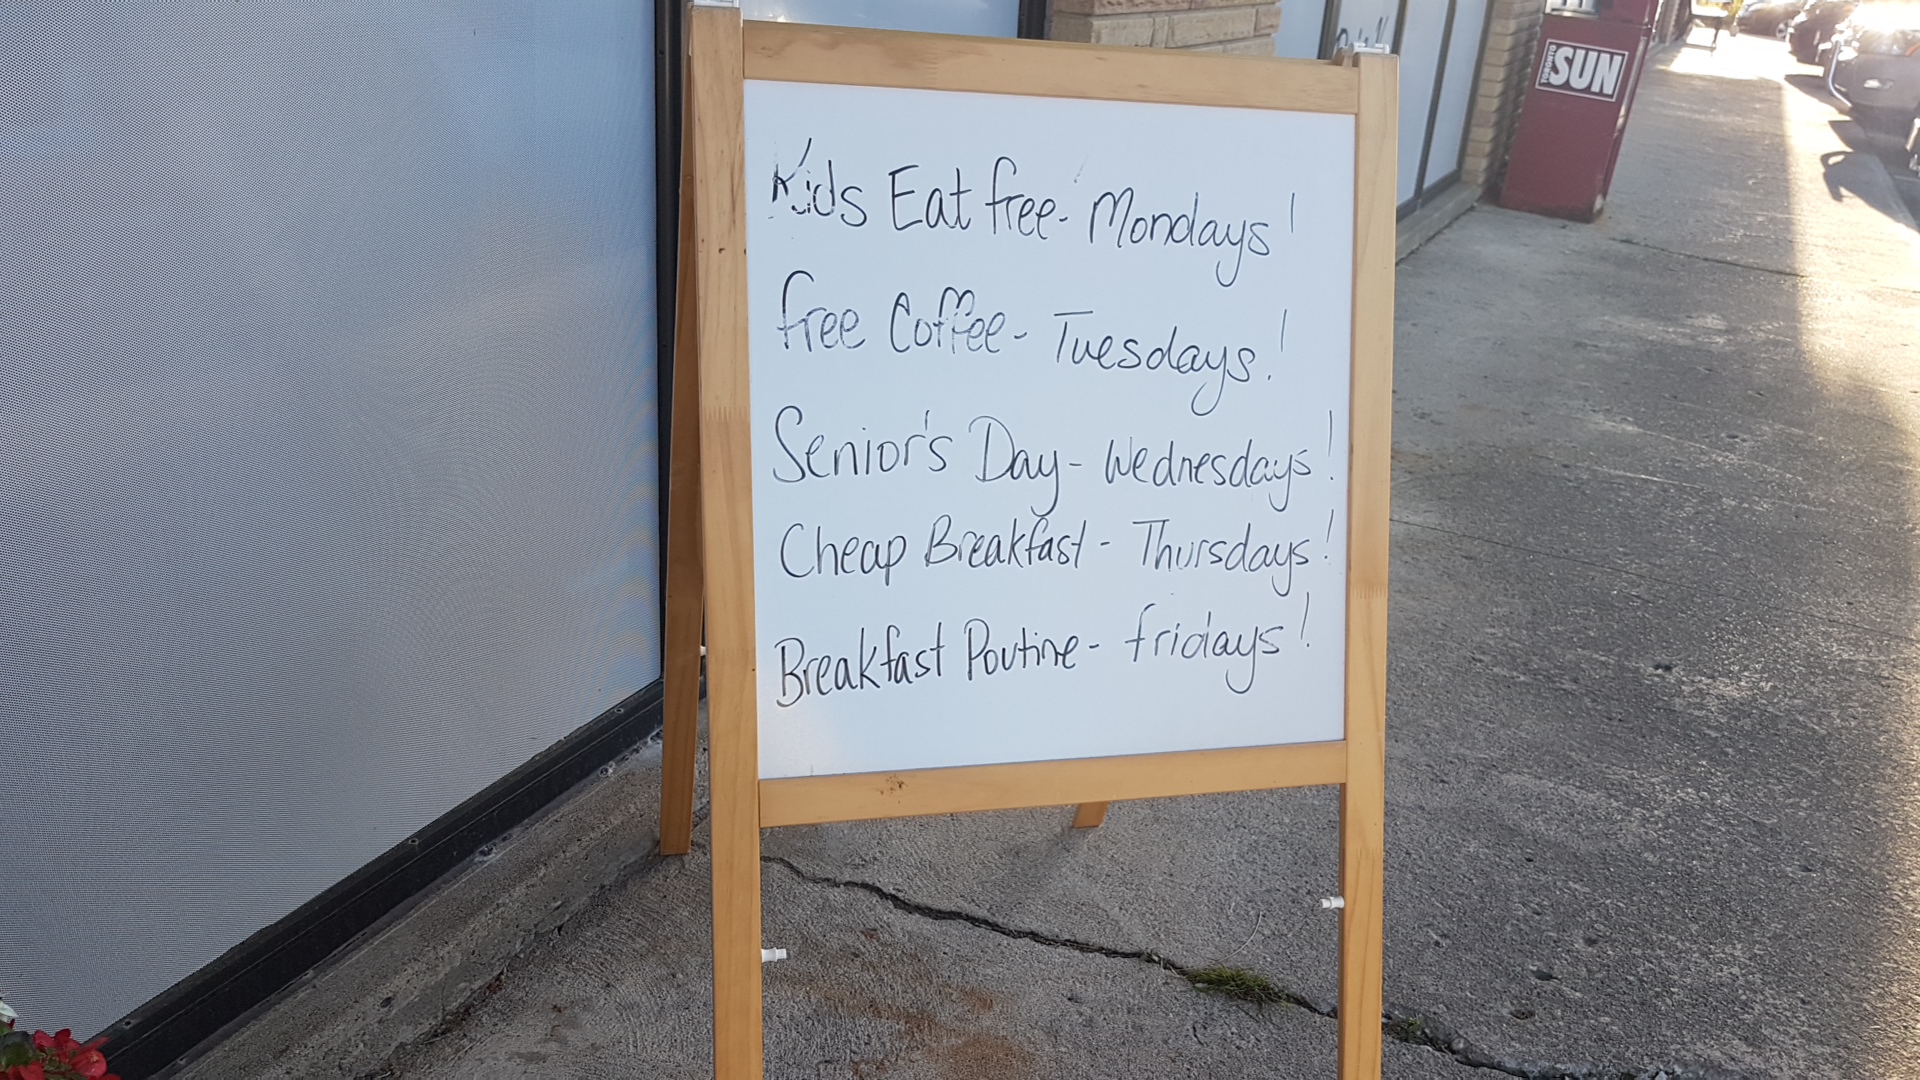 Kids Eat free - Mondays!
free Coffee - Tuesdays!
Senior's Day - Wednesdays!
Cheap Breakfast - Thursdays!
Breakfast Poutine - fridays!
TORONTO SUN